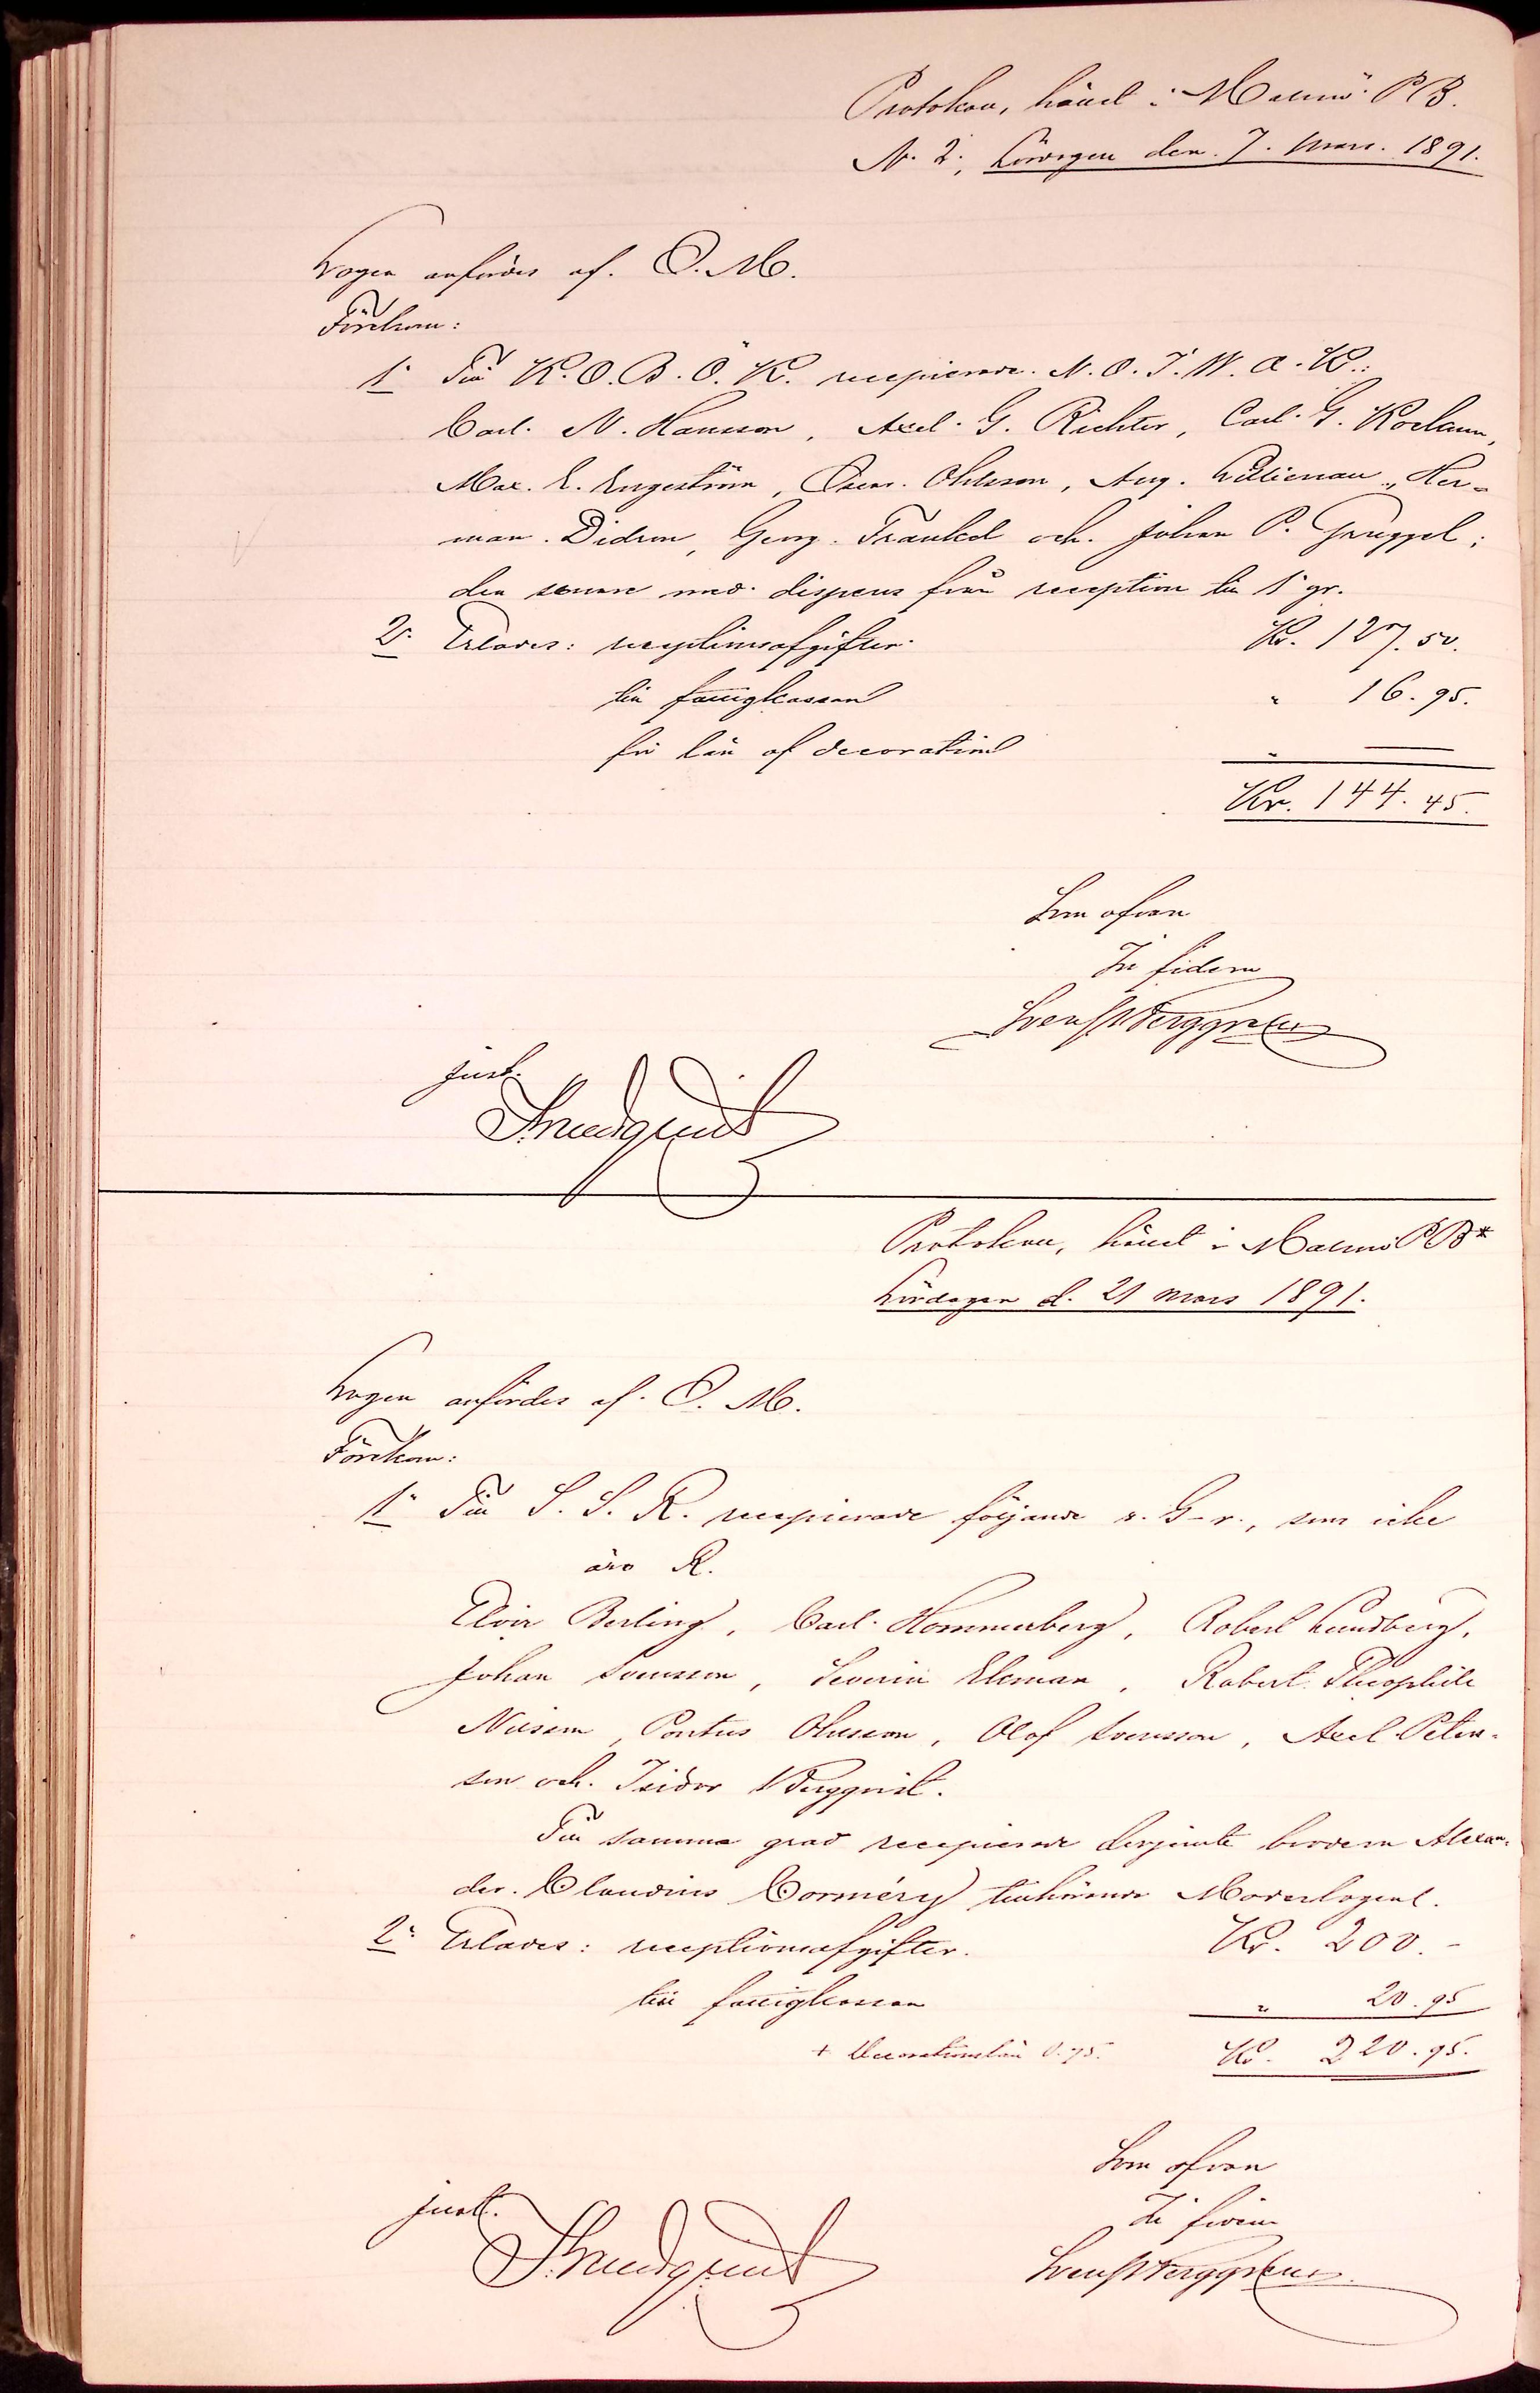 Protokoll, hållet i Malmö P B.
N. 2, Lördagen den 7. Mars. 1891.
Logen anfördes af. O. M.
Förekom:
1º Till K. O. B. Ö. K. recipierade N. O. I. W. A. K.:
Carl. N. Hansson, Axel. G. Richter, Carl. G.
Max. E. Engeström, Oscar. Ohlsson, Aug. Lillienau, Her-
man. Didron, Georg. Fränkel och. Johan P. Grüggel;
den senare med. dispens från reception till 1º gr.
2º Erlades: receptionsafgifter Kr. 127.50.
till fattigkassan " 16.95.
för lån af decoration " —
Kr. 144.45.
Som ofvan
In fidem
Sven Berggren
just.
Protokoll, hållet i Malmö P B*
Lördagen d. 21 mars 1891.
Logen anfördes af. O. M.
Förekom:
1º Till S. S. R. recipierade följande s. G-r., som icke
äro R.
Elvir Berling, Carl. Hommerberg, Robert Lundberg,
Johan Svensson, Severin Ekman, Robert. Theophile
Nilsson, Pontus Ohlsson, Olof Svensson, Axel Peter-
son och. Isidor Bergqvist.
Till samma grad recipierade brodern Alexan-
der. Claudius Corméry tillhörande Moderlogen.
2º Erlades: receptionsafgifter. Kr. 200.-
till fattigkassan " 20.95
+ Decorationslån 0.75. Kr. 220.95.
Som ofvan
In fidem
Sven Berggren
just.